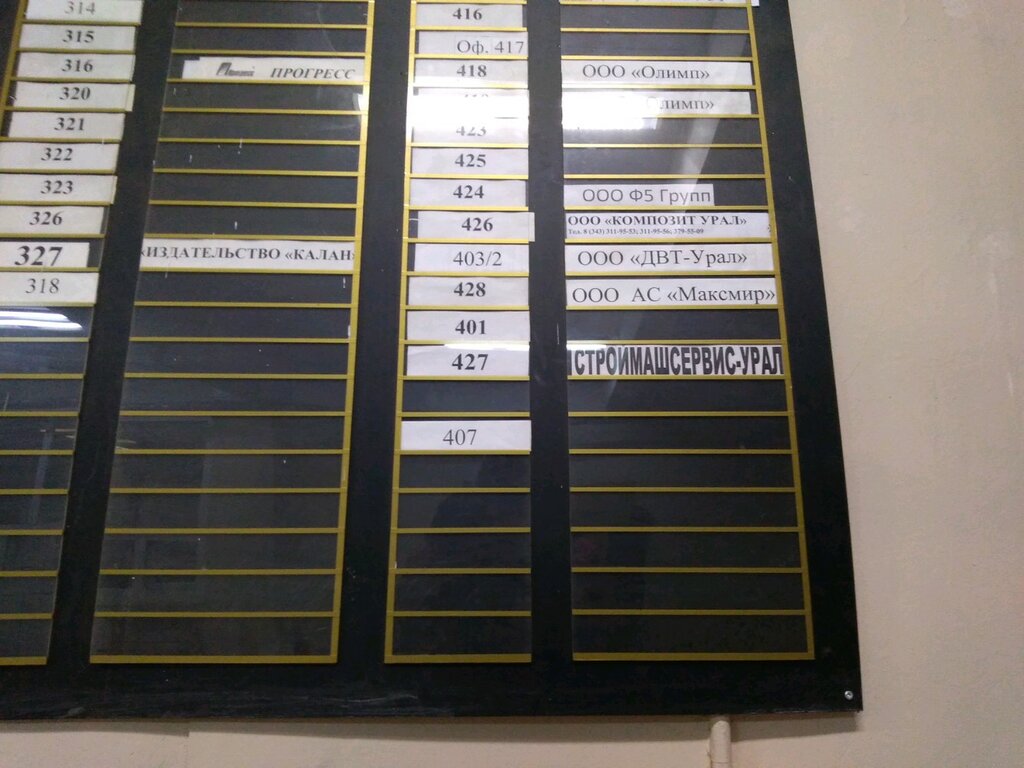 314
315
316 ПРОГРЕСС
320
321
322
323
326
327 ИЗДАТЕЛЬСТВО «КАЛАН»
318
416
Оф. 417
418 ООО «Олимп»
Олимп»
423
425
424 ООО Ф5 Групп
426 ООО «КОМПОЗИТ УРАЛ»
Тел. 8 (343) 311-95-53; 311-95-56; 379-55-09
403/2 ООО «ДВТ-Урал»
428 ООО АС «Максмир»
401
427 СТРОЙМАШСЕРВИС-УРАЛ
407